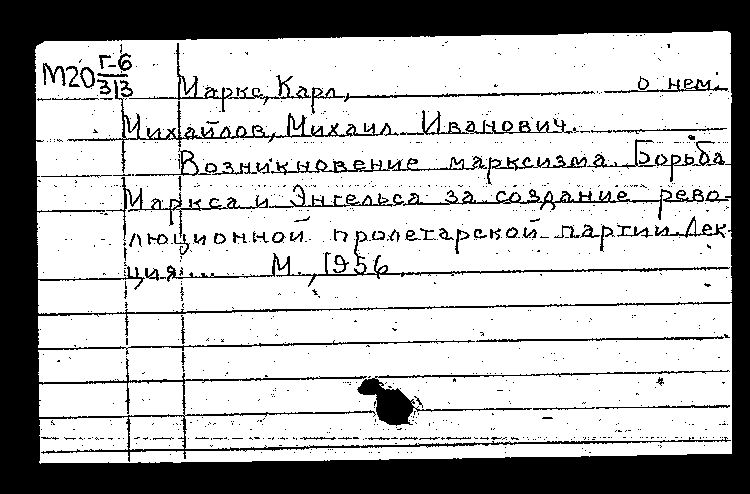 М20 Г-6/313 Маркс, Карл, о нем.
Михайлов, Михаил Иванович.
Возникновение марксизма. Борьба
Маркса и Энгельса за создание рево-
люционной пролетарской партии. Лек-
ция... М., 1956.